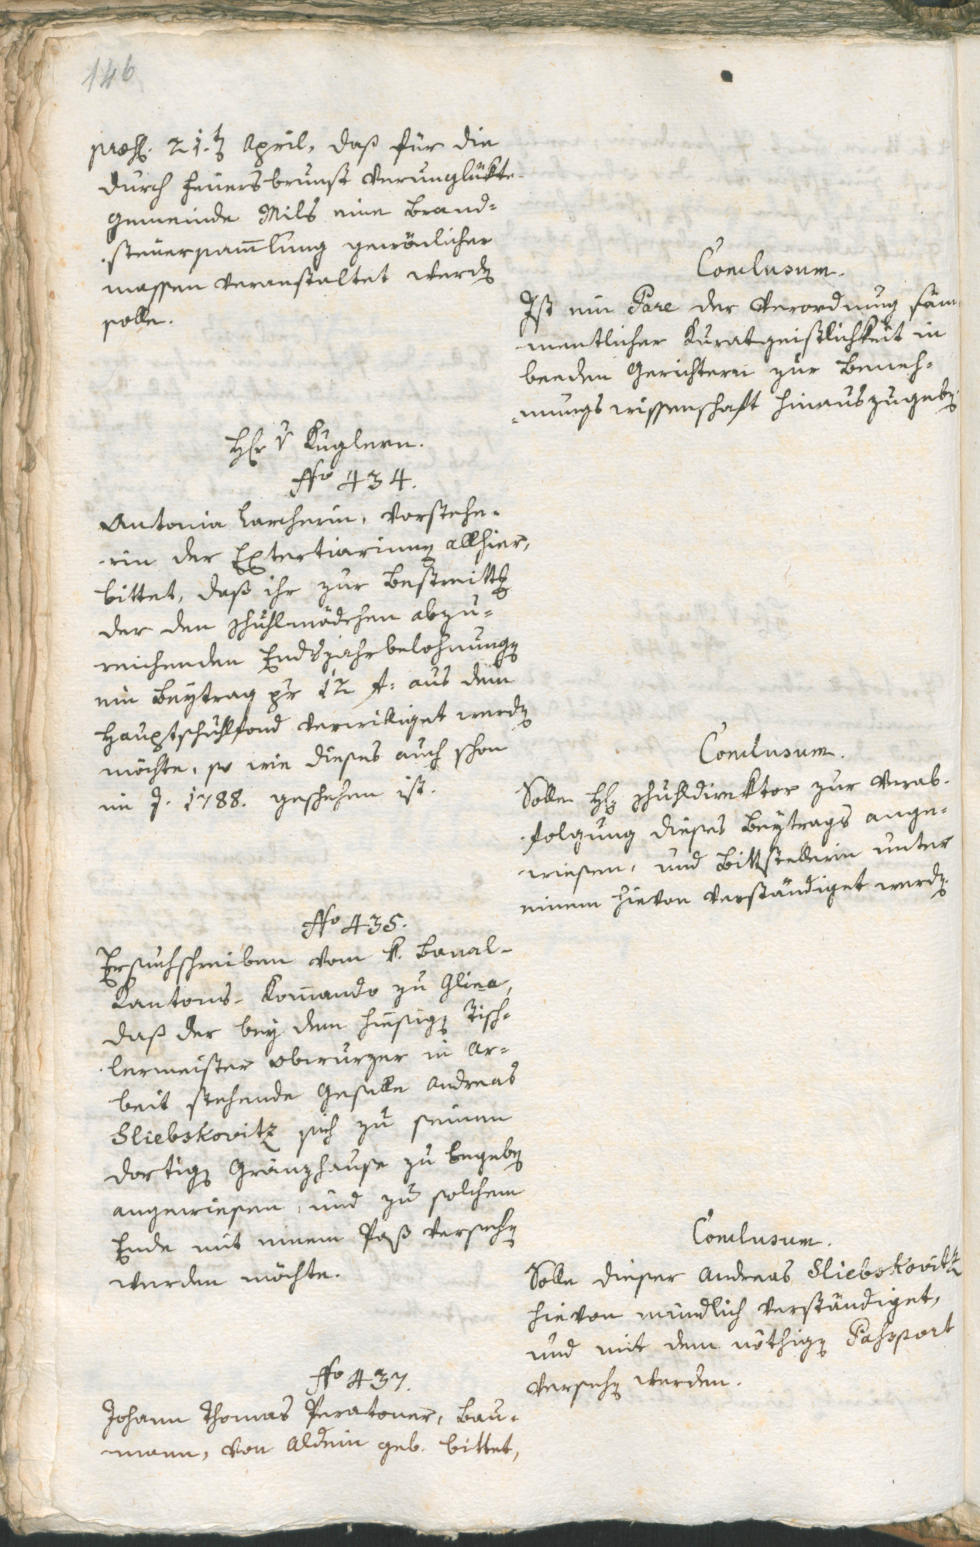 146
præs. 21.ten April, daß für die
durch Feuersbrunst verunglükte
Gemeinde Mils eine Brand-
steuersamlung gewönlicher
massen veranstaltet werden
solle.
Conclusum.
Ist ein Pare der Verordnung säm-
mentlicher Kuratgeistlichkeit in
beeden Gerichtern zur Beneh-
mungswissenschaft hinauszugeben.
Hr v Kuglern.
No 434.
Antonia Larcherin, Vorstehe-
rin der Extertiarinnen allhier,
bittet, daß ihr zur Bestreittg
der den Schuhlmädchen abzu-
reichenden Endsjahrbelohnungen
ein Beytrag pr 12 f: aus dem
Hauptschuhlfond verwilliget werden
möchte, so wie dieses auch schon
im J. 1788. geschehen ist.
Conclusum.
Solle Hr Schuhldirektor zur Verab-
folgung dieses Beytrags ange-
wiesen, und Bittstellerin unter
einem hievon verständiget werden.
No 435.
Ersuchschreiben vom k. Banal-
Kantons-Komando zu Glina,
daß der bey dem hiesigen Tisch-
lermeister Obwurzer in Ar-
beit stehende Geselle Andreas
Sliebskovitz sich zu seinem
dortigen Gränzhause zu begeben
angewiesen, und zu solchem
Ende mit einem Paß versehen
werden möchte.
Conclusum.
Solle dieser Andreas Sliebskovitz
hievon mündlich verständiget,
und mit dem nöthigen Passport
versehen werden.
No 437.
Johann Thomas Peratoner, Bau-
mann, von Aldein geb. bittet,